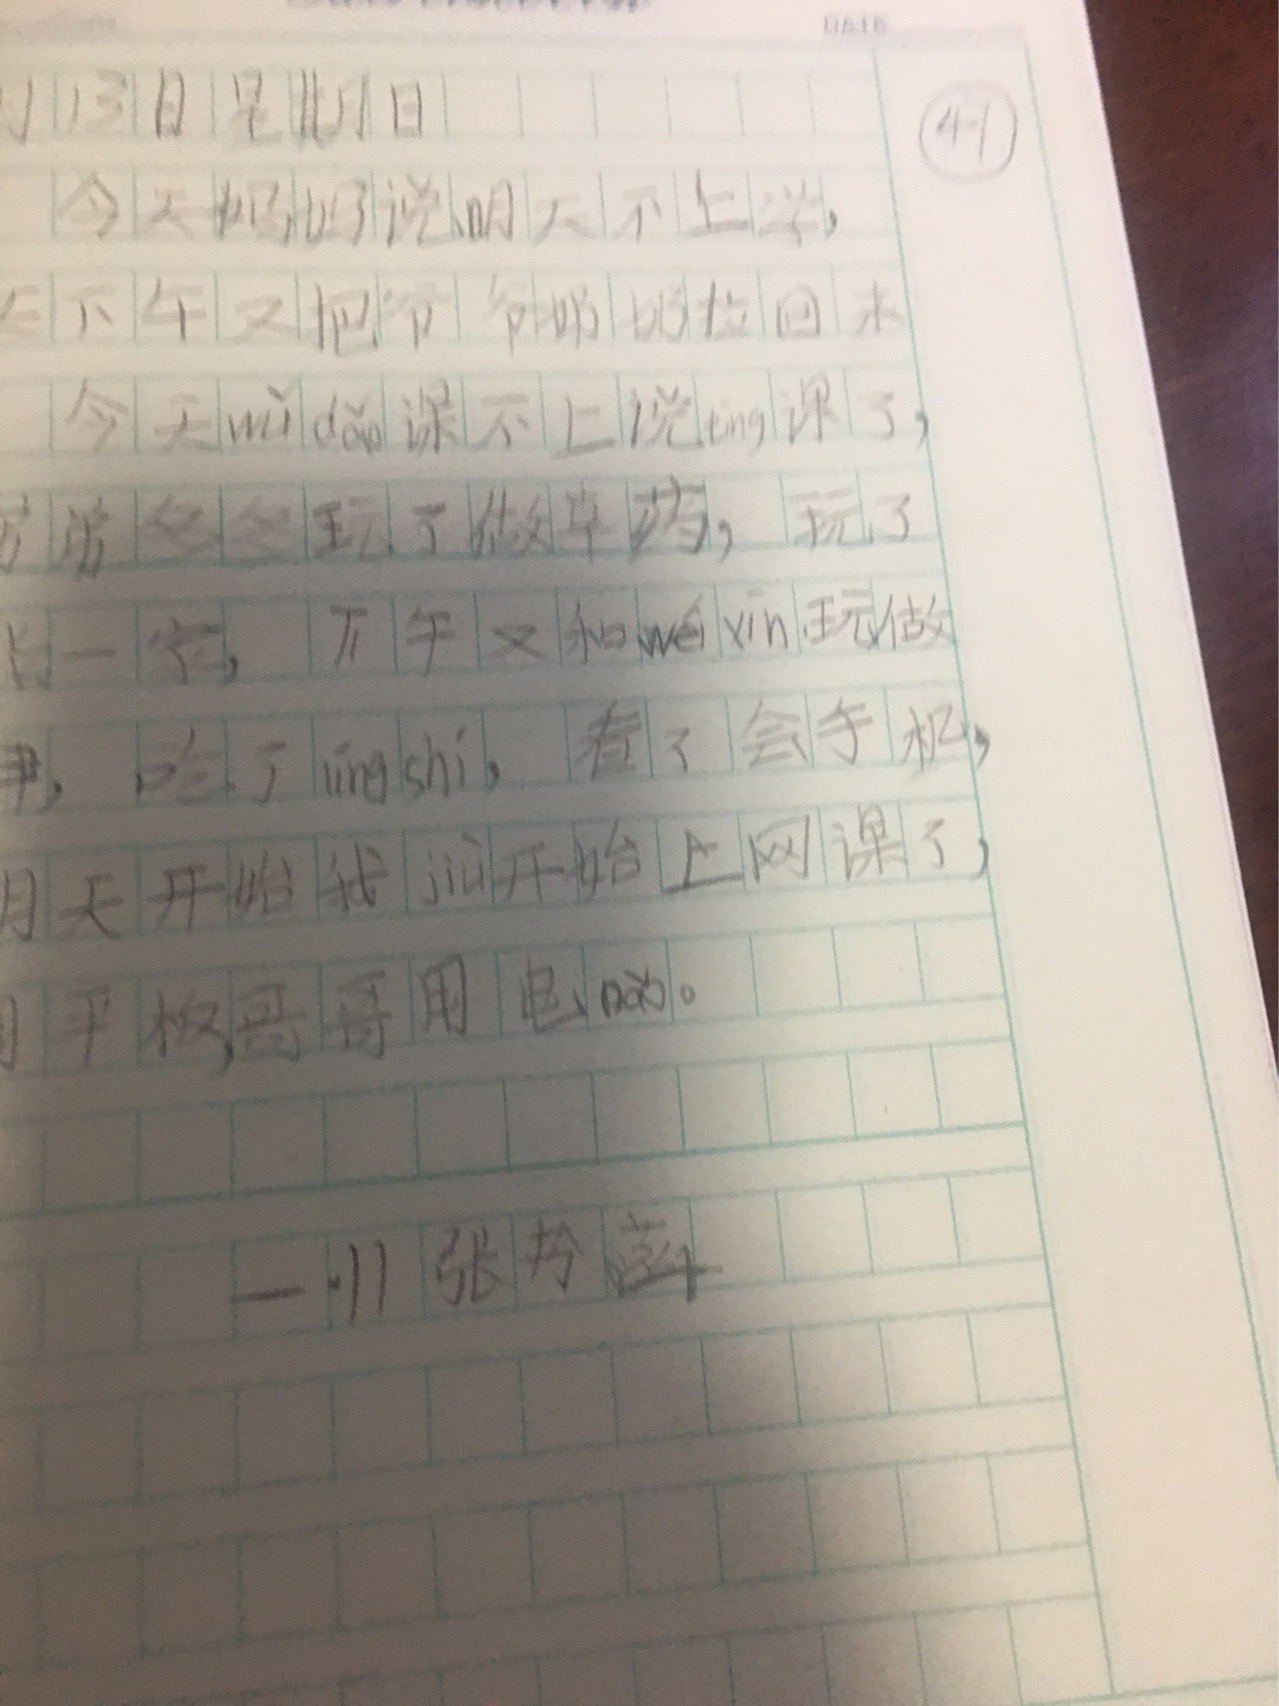 DATE
月13日星期日
41
今天妈妈说明天不上学,
下午又把爷爷奶奶拉回来
今天wǔ dǎo课不上说tíng课了,
诺冬冬玩了做草药,玩了
一家,下午又和wéi xīn玩做
,吃了líng shí,看了会手机,
明天开始我jiù开始上网课了,
用平板,哥哥用电nǎo。
一·11 张